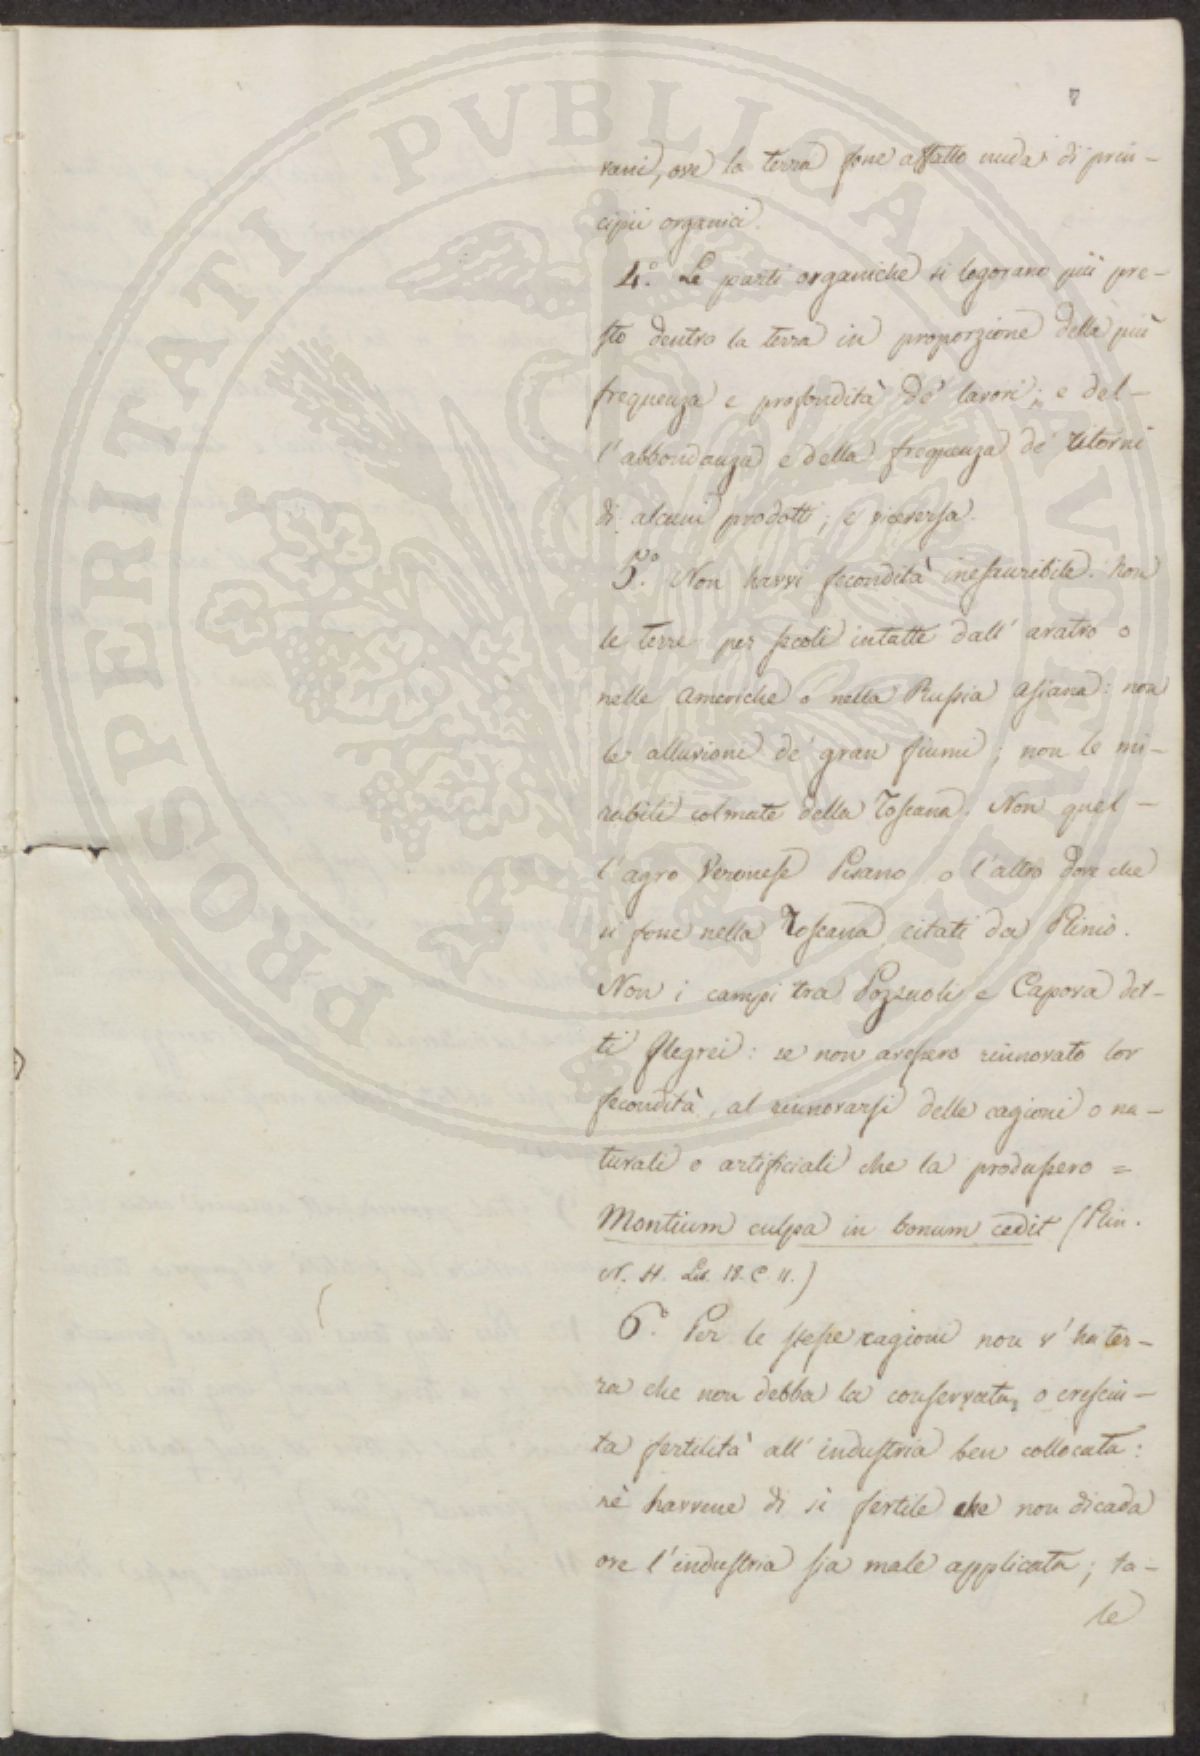 7
vani, ove la terra fone affatto nuda di prin-
cipii organici.
4.° Le parti organiche si logorano più pre-
sto dentro la terra in proporzione della più
frequenza e profondità de' lavori; e del-
l'abbondanza e della frequenza de' ritorni
di alcuni prodotti; e viceversa.
5.° Non havvi fecondità inesauribile. Non
le terre per secoli intatte dall'aratro o
nelle Americhe o nella Russia asiana: non
le alluvioni de' gran fiumi; non le mi-
rabili colmate della Toscana. Non quel-
l'agro Veronese Pisano o l'altro dove che
si fone nella Toscana citati da Plinio.
Non i campi tra Pozzuoli e Capova det-
ti flegrei: se non avessero rinnovato lor
fecondità, al rinnovarsi delle cagioni o na-
turali o artificiali che la produssero =
Montium culpa in bonum cedit (Plin.
N. H. Lib. 18. C. 11.)
6.° Per le stesse ragioni non v'ha ter-
ra che non debba la conservata, o cresciu-
ta fertilità all'industria ben collocata:
nè havvene di sì fertile che non dicada
ove l'industria sia male applicata; ta-
le
PROSPERITATI PVBLICAE AVGENDAE